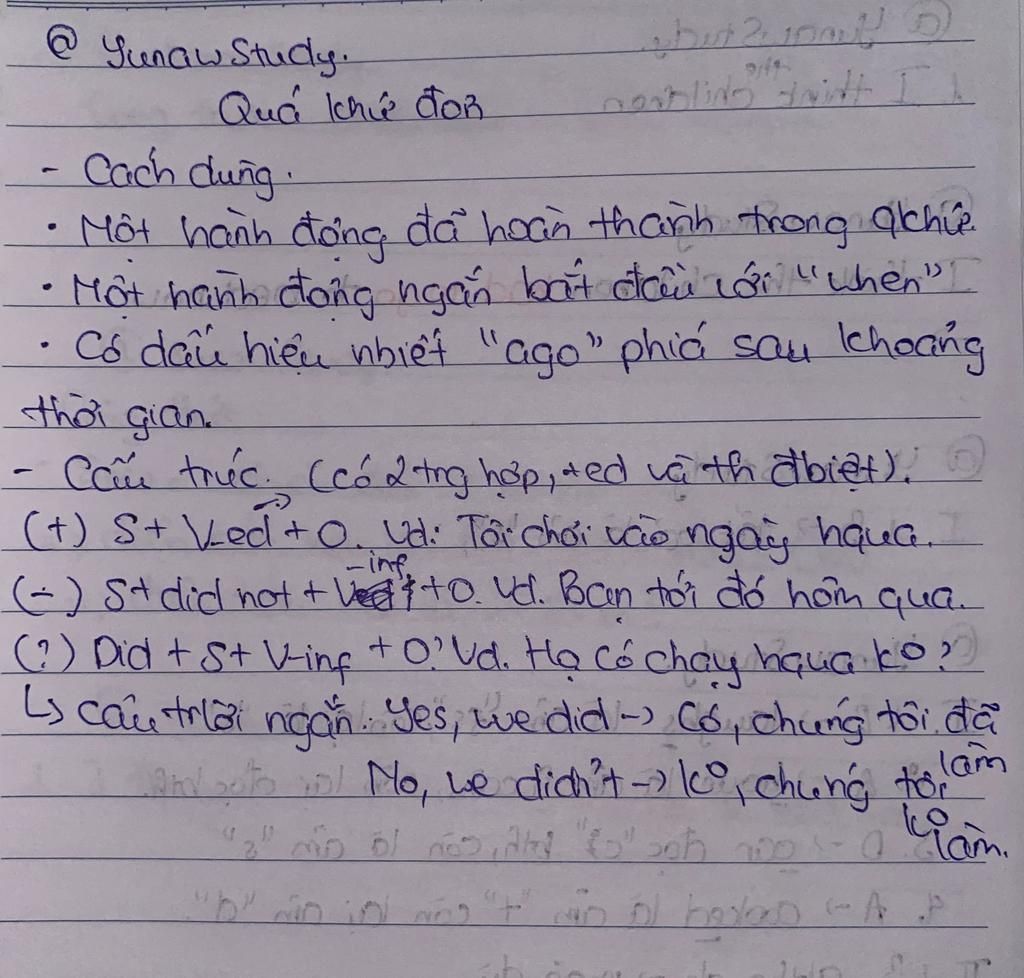 @ Yunaw Study.
Quá khứ đơn
- Cách dùng.
• Một hành động đã hoàn thành trong qkhứ.
• Một hành động ngắn bắt đầu với "when"
• Có dấu hiệu nhiết "ago" phiá sau khoảng
thời gian.
- Cấu trúc. (có 2 trg hợp, +ed và th đbiệt).
(+) S + V-ed + O. Vd: Tôi chơi vào ngày hqua.
(-) S + did not + V-inf + O. Vd. Bạn tới đó hôm qua.
(?) Did + S + V-inf + O? Vd. Họ có chạy hqua ko?
↳ câu trlời ngắn: Yes, we did -> Có, chúng tôi đã
làm
No, we didn't -> ko, chúng tôi
ko
làm.